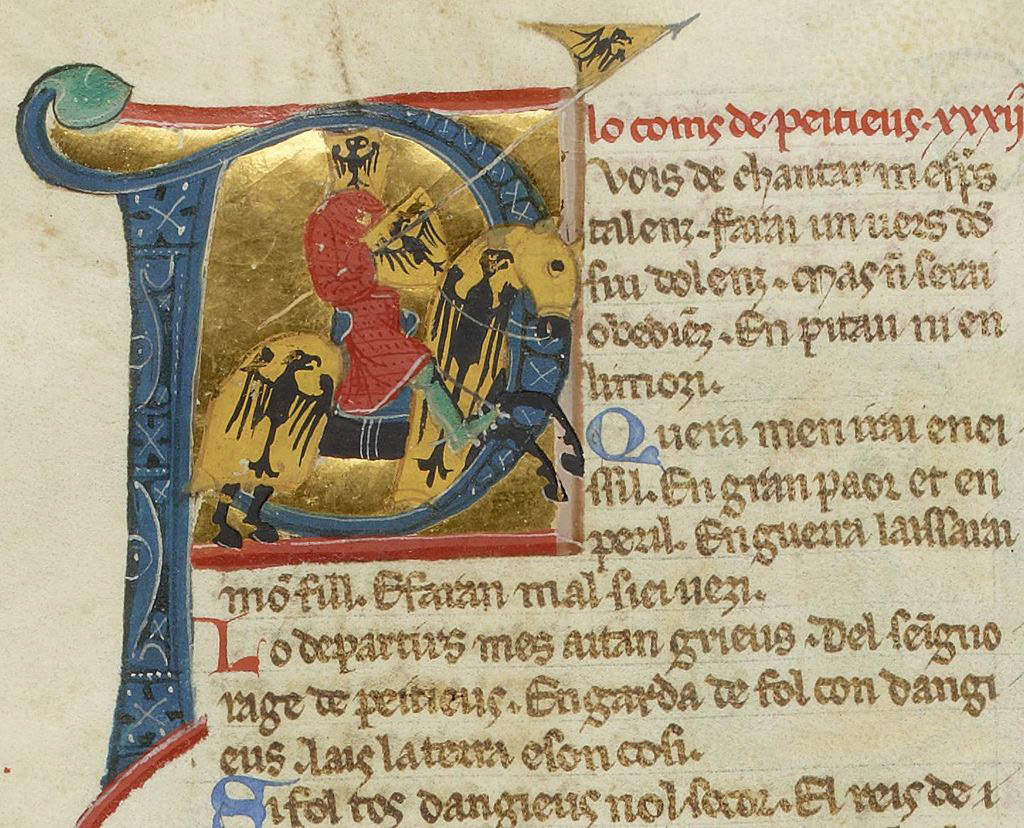 lo coms de peitieus. xxxij
P vois de chantar mespͥs
talenz. farai un uers dō
sui dolenz. mas ñ serai
obediēz. En pitau ni en
limozi.
Quera men irai en ei
ssil. En gran paor et en
peril. En guerra laissarai
mō fill. E faran mal siei uezi.
Lo departirs mes aitan grieus. Del seigno
rage de peitieus. En garda de fol con dangi
eus. Lais la terra e son cosi.
Si fol cos dangieus nol secor. El reis de